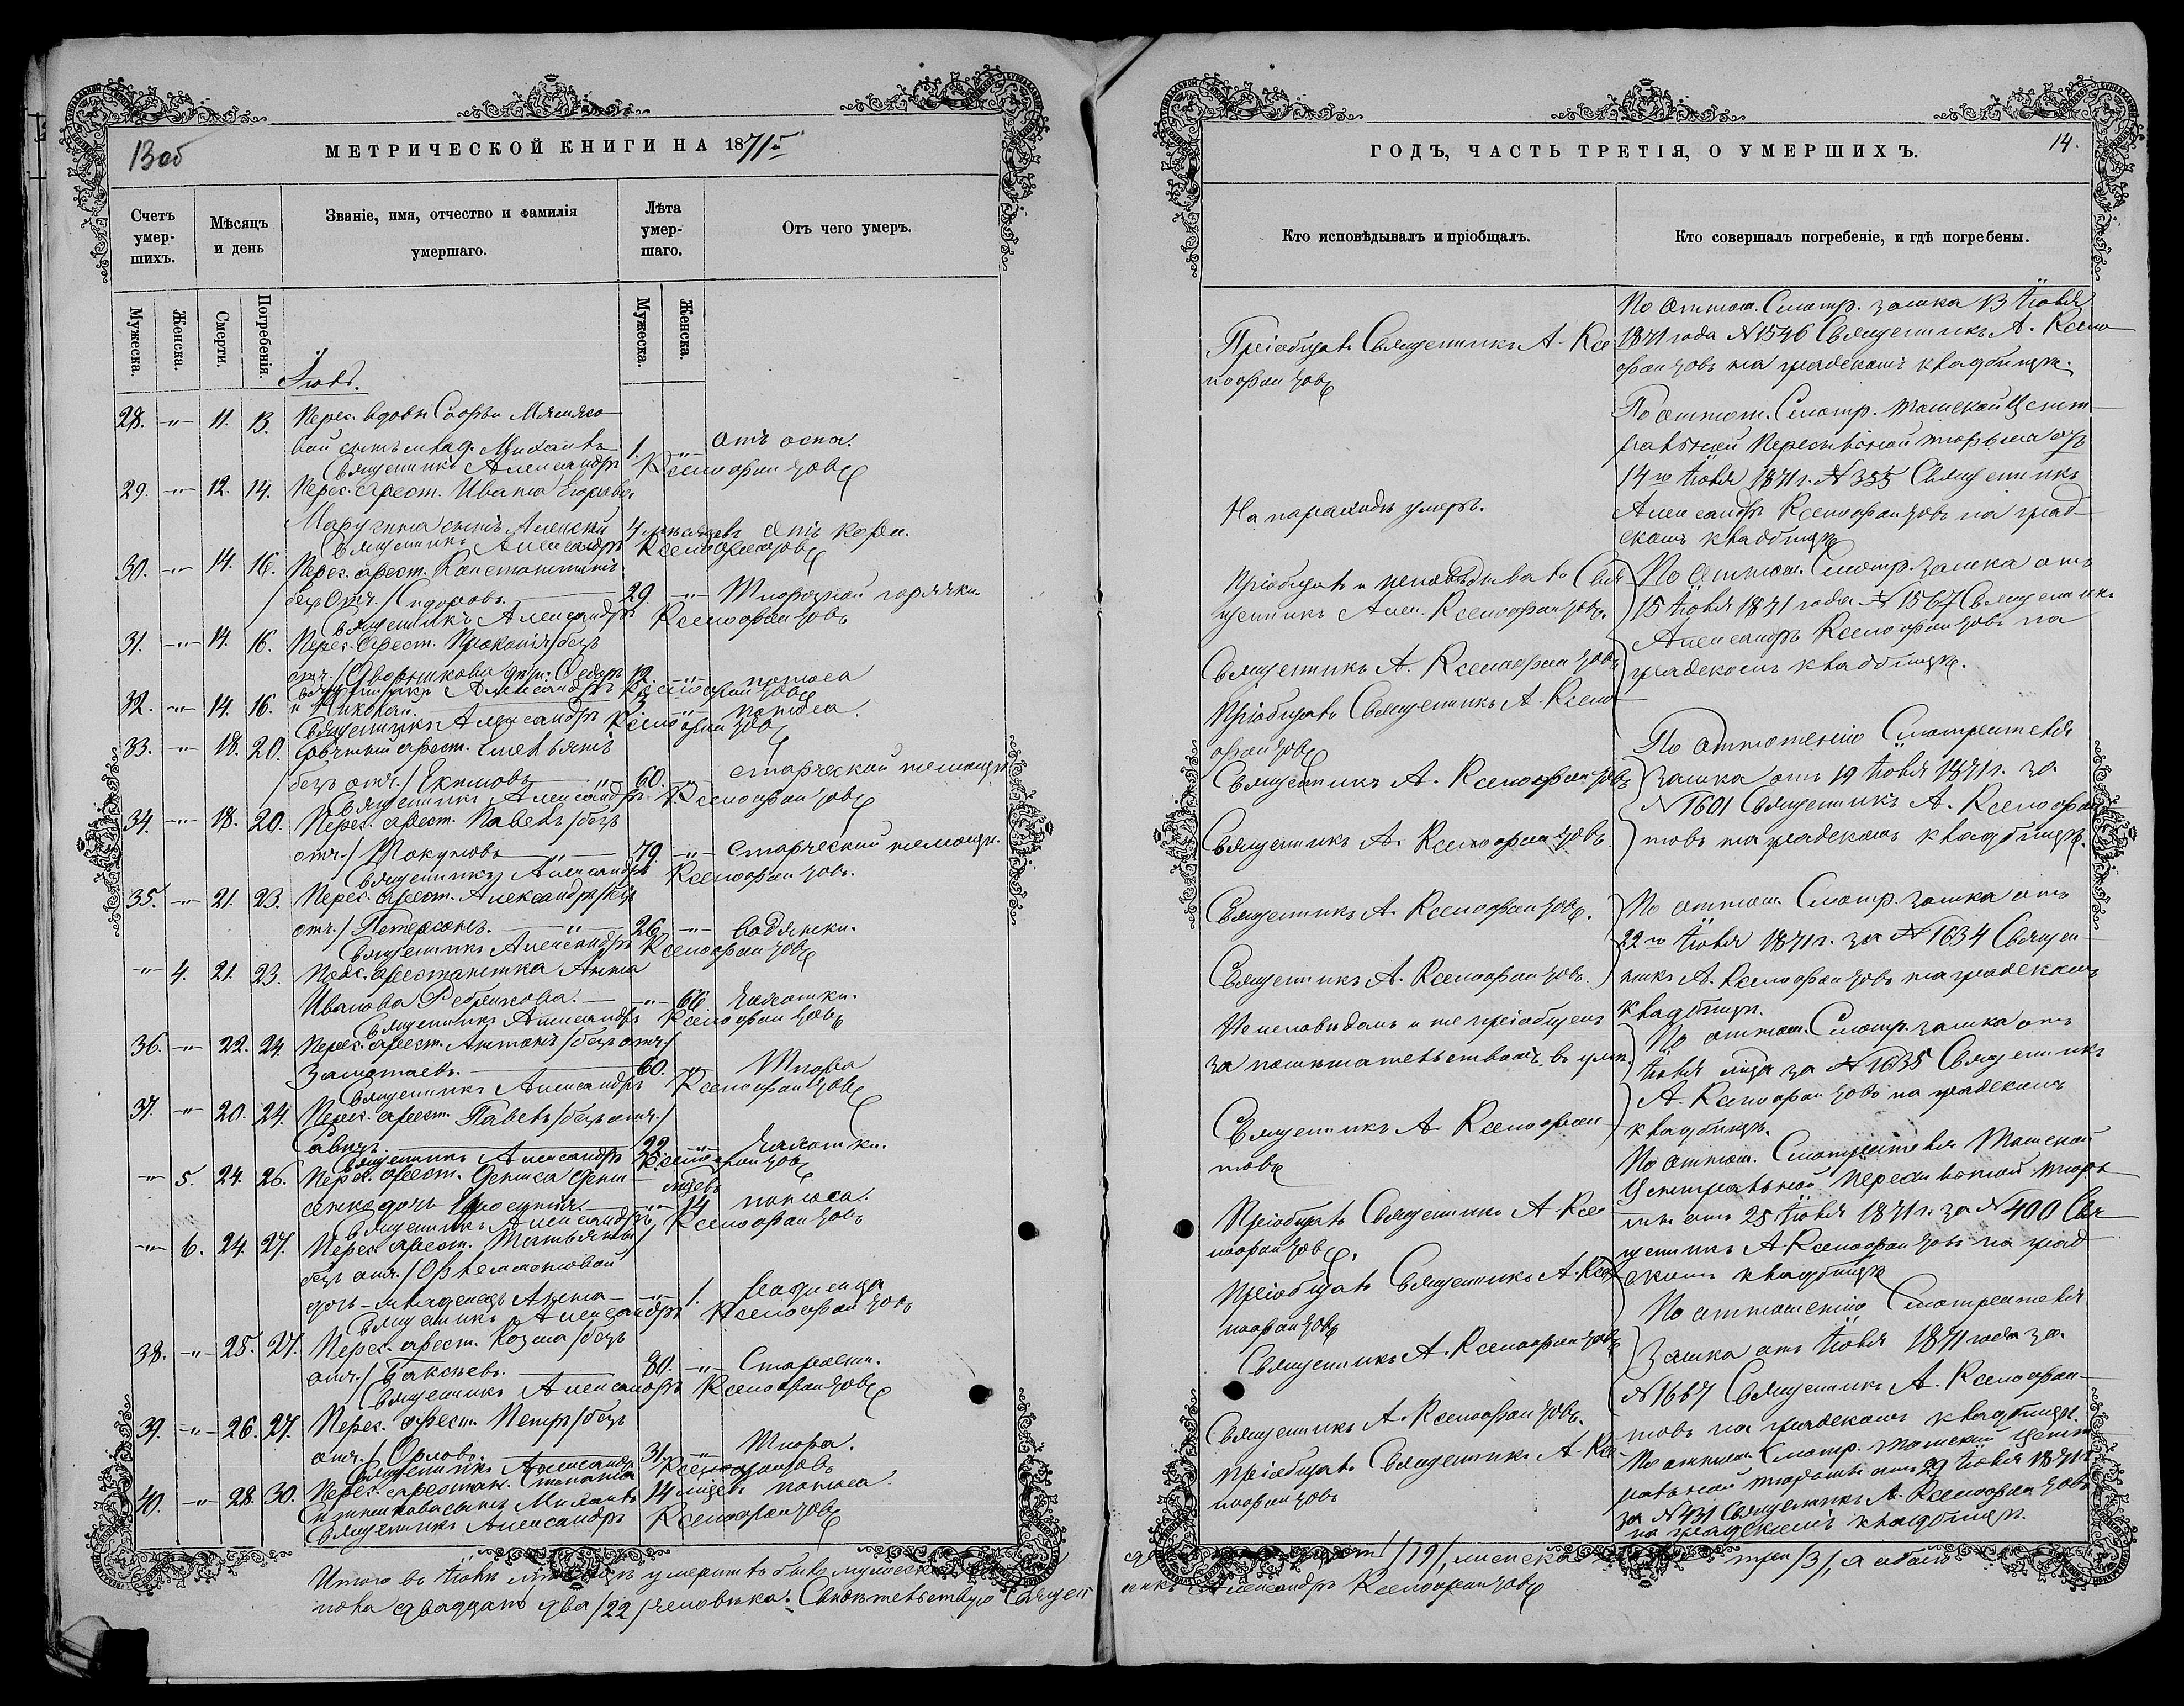 13об
МЕТРИЧЕСКОЙ КНИГИ НА 1871й
Счетъ умер-шихъ.
Мѣсяцъ и день
Званіе, имя, отчество и фамилія умершаго.
Лѣта умер-шаго.
Отъ чего умеръ.
Мужеска.
Женска.
Смерти.
Погребенія.
Мужеска.
Женска.
Іюль.
28. -"- 11. 13. Перес. вдовы Софьи
сынъ млад. Михаилъ 1. " отъ оспы.
Священникъ Александръ Ксенофонтовъ
29. -"- 12. 14. Перес. арест. Ивана Егорова
сынъ Алексѣй 4 мѣсяцевъ отъ кори.
Священникъ Александръ Ксенофонтовъ
30. -"- 14. 16. Перес. арест. Константинъ
/безъ отч./ Сидоровъ. 29. -"- Тифозной горячки.
Священникъ Александръ Ксенофонтовъ
31. -"- 14. 16. Перес. арест. Прокопія /безъ
отч./ Дворникова дѣти: Ѳедоръ 12. " поноса
Священникъ Александръ Ксенофонтовъ
32. -"- 14. 16. и Николай. 3. " поноса.
Священникъ Александръ Ксенофонтовъ
33. -"- 18. 20. арест. Емельянъ
/безъ отч./ Екимовъ -"- 60. -"- старческой немощи
Священникъ Александръ Ксенофонтовъ
34. -"- 18. 20. Перес. арест. Павелъ /безъ
отч./ Токуновъ " 79. -"- старческой немощи.
Священникъ Александръ Ксенофонтовъ.
35. -"- 21. 23. Перес. арест. Александръ /безъ
отч./ Петерсонъ. -"- 26. -"- водянки.
Священникъ Александръ Ксенофонтовъ
-"- 4. 21. 23. Перес. арестантка Анна
Иванова -"- 66 чахотки.
Священникъ Александръ Ксенофонтовъ
36. -"- 22. 24. Перес. арест. Антонъ /безъ отч./
60. " Тифа
Священникъ Александръ Ксенофонтовъ
37. -"- 20. 24. Перес. арест. Павелъ /безъ отч./
Савичъ. 22. -"- чахотки.
Священникъ Александръ Ксенофонтовъ
-"- 5. 24. 26. Перес. арест. Дениса
дочь мцевъ 14 поноса.
Священникъ Александръ Ксенофонтовъ
-"- 6. 24. 27. Перес. арест. Татьяны /
безъ отч./
дочь-младенецъ Анна -"- 1.
Священникъ Александръ Ксенофонтовъ
38. -"- 25. 27. Перес. арест. Козма /безъ
отч./ 80. -"- Старости.
Священникъ Александръ Ксенофонтовъ
39. -"- 26. 27. Перес. арест. Петръ /безъ
отч./ Орловъ. 31. -"- Тифа.
Священникъ Александръ Ксенофонтовъ
40. -"- 28. 30. Перес. арестан. Степана
сынъ Михаилъ 14 мцевъ поноса.
Священникъ Александръ Ксенофонтовъ
Итого въ Іюлѣ мѣсяцѣ умершихъ было мужеска
пола двадцать два /22/ человѣка. Свидѣтельствую Священ
ГОДЪ, ЧАСТЬ ТРЕТІЯ, О УМЕРШИХЪ.
14.
Кто исповѣдывалъ и пріобщалъ.
Кто совершалъ погребеніе, и гдѣ погребены.
Пріобщалъ Священникъ А. Ксе
нофонтовъ
На пароходѣ умеръ.
Пріобщалъ и исповѣдывалъ Свя
щенникъ Алек. Ксенофонтовъ.
Священникъ А. Ксенофонтовъ
Пріобщалъ Священникъ А. Ксено
фонтовъ
Священникъ А. Ксенофонтовъ
Священникъ А. Ксенофонтовъ.
Священникъ А. Ксенофонтовъ.
Священникъ А. Ксенофонтовъ.
Не исповѣданъ и не пріобщенъ
за помѣшательствомъ въ умѣ.
Священникъ А. Ксенофон
товъ
Пріобщалъ Священникъ А. Ксе
нофонтовъ.
Пріобщалъ Священникъ А. Ксе
нофонтовъ
Священникъ А. Ксенофонтовъ
Священникъ А. Ксенофонтовъ.
Пріобщалъ Священникъ А. Ксе
нофонтовъ
По отнош. Смотр. замка 13 Іюля
1871 года № 1546 Священникъ А. Ксено
фонтовъ на градскомъ кладбищѣ.
По отнош. Смотр. Томской Цент
ральной Пересыльной тюрьмы отъ
14го Іюля 1871 г. № 355 Священникъ
Александръ Ксенофонтовъ на град
скомъ кладбищѣ
По отнош. Смотр. замка отъ
15 Іюля 1871 года № 1567 Священникъ
Александръ Ксенофонтовъ на
градскомъ кладбищѣ.
По отношенію Смотрителя
замка отъ 19 Іюля 1871 г. за
№ 1601 Священникъ А. Ксенофон
товъ на градскомъ кладбищѣ.
По отнош. Смотр. замка отъ
22го Іюля 1871 г. за № 1634 Священ
никъ А. Ксенофонтовъ на градскомъ
кладбищѣ.
По отнош. Смотр. замка отъ
Іюля за № 1635 Священникъ
А. Ксенофонтовъ на градскомъ
кладбищѣ.
По отнош. Смотрителя Томской
Центральной Пересыльной тюрь
мы отъ 25 Іюля 1871 г. за № 400 Свя
щенникъ А Ксенофонтовъ на град
скомъ кладбищѣ
По отношенію Смотрителя
Замка отъ Іюля 1871 года за
№ 1667 Священникъ А. Ксенофон
товъ на градскомъ кладбищѣ.
По отнош. Смотр. Томской Цент
ральной тюрьмы отъ 29 Іюля 1871 г.
за № 431 Священникъ А. Ксенофонтовъ
на градскомъ кладбищѣ.
/19/, женска три /3/, а обоего
никъ Александръ Ксенофонтовъ